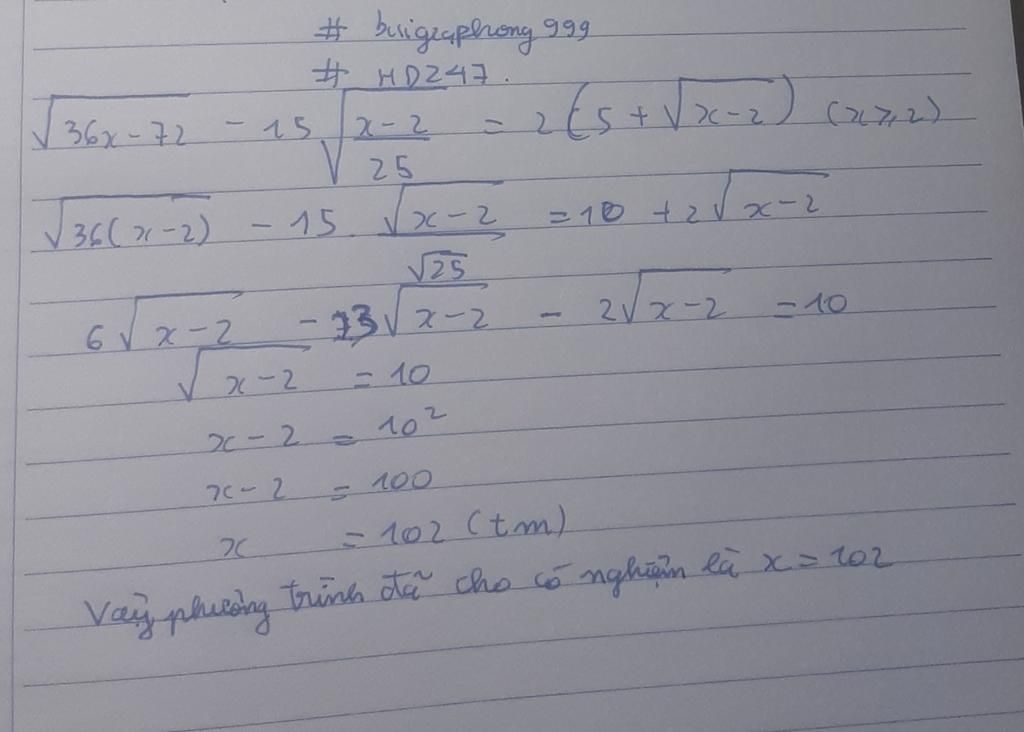 # buigiaphong999
# HD247.
√(36x-72) - 15√((x-2)/25) = 2(5+√(x-2)) (x≥2)
√(36(x-2)) - 15. √(x-2)/√25 = 10 + 2√(x-2)
6√(x-2) - 3√(x-2) - 2√(x-2) = 10
√(x-2) = 10
x-2 = 10²
x-2 = 100
x = 102 (tm)
Vậy phương trình đã cho có nghiệm là x = 102